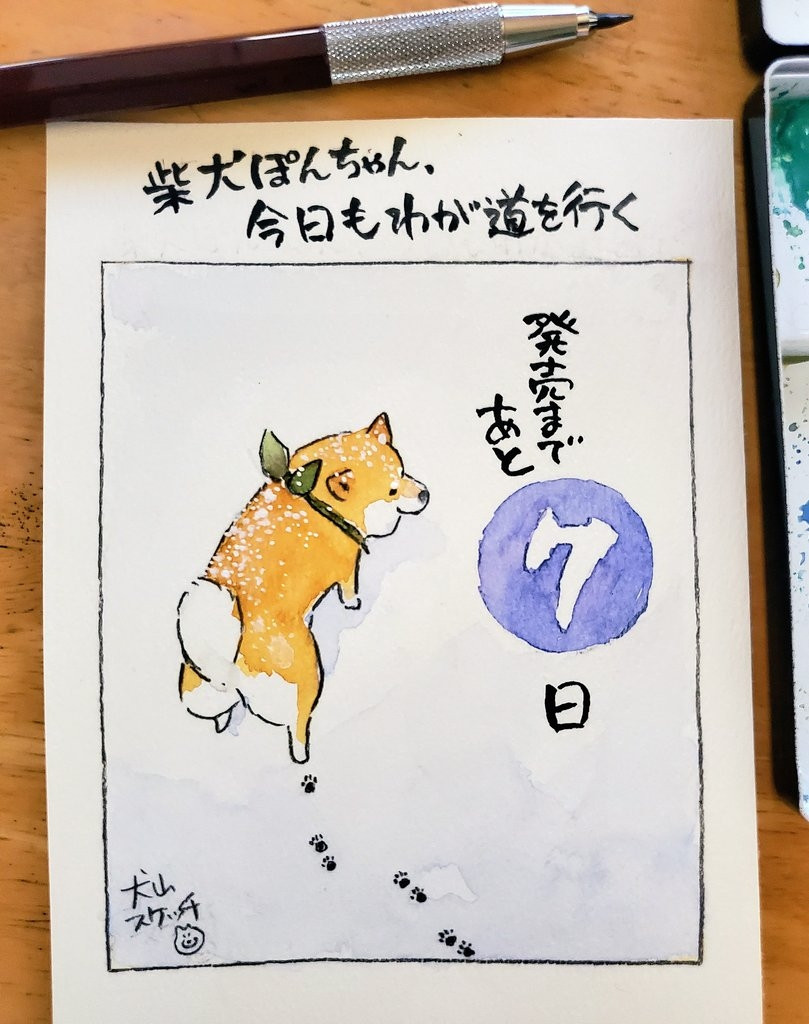 柴犬ぽんちゃん、
今日もわが道を行く
発売まで
あと
7
日
犬山
スケッチ